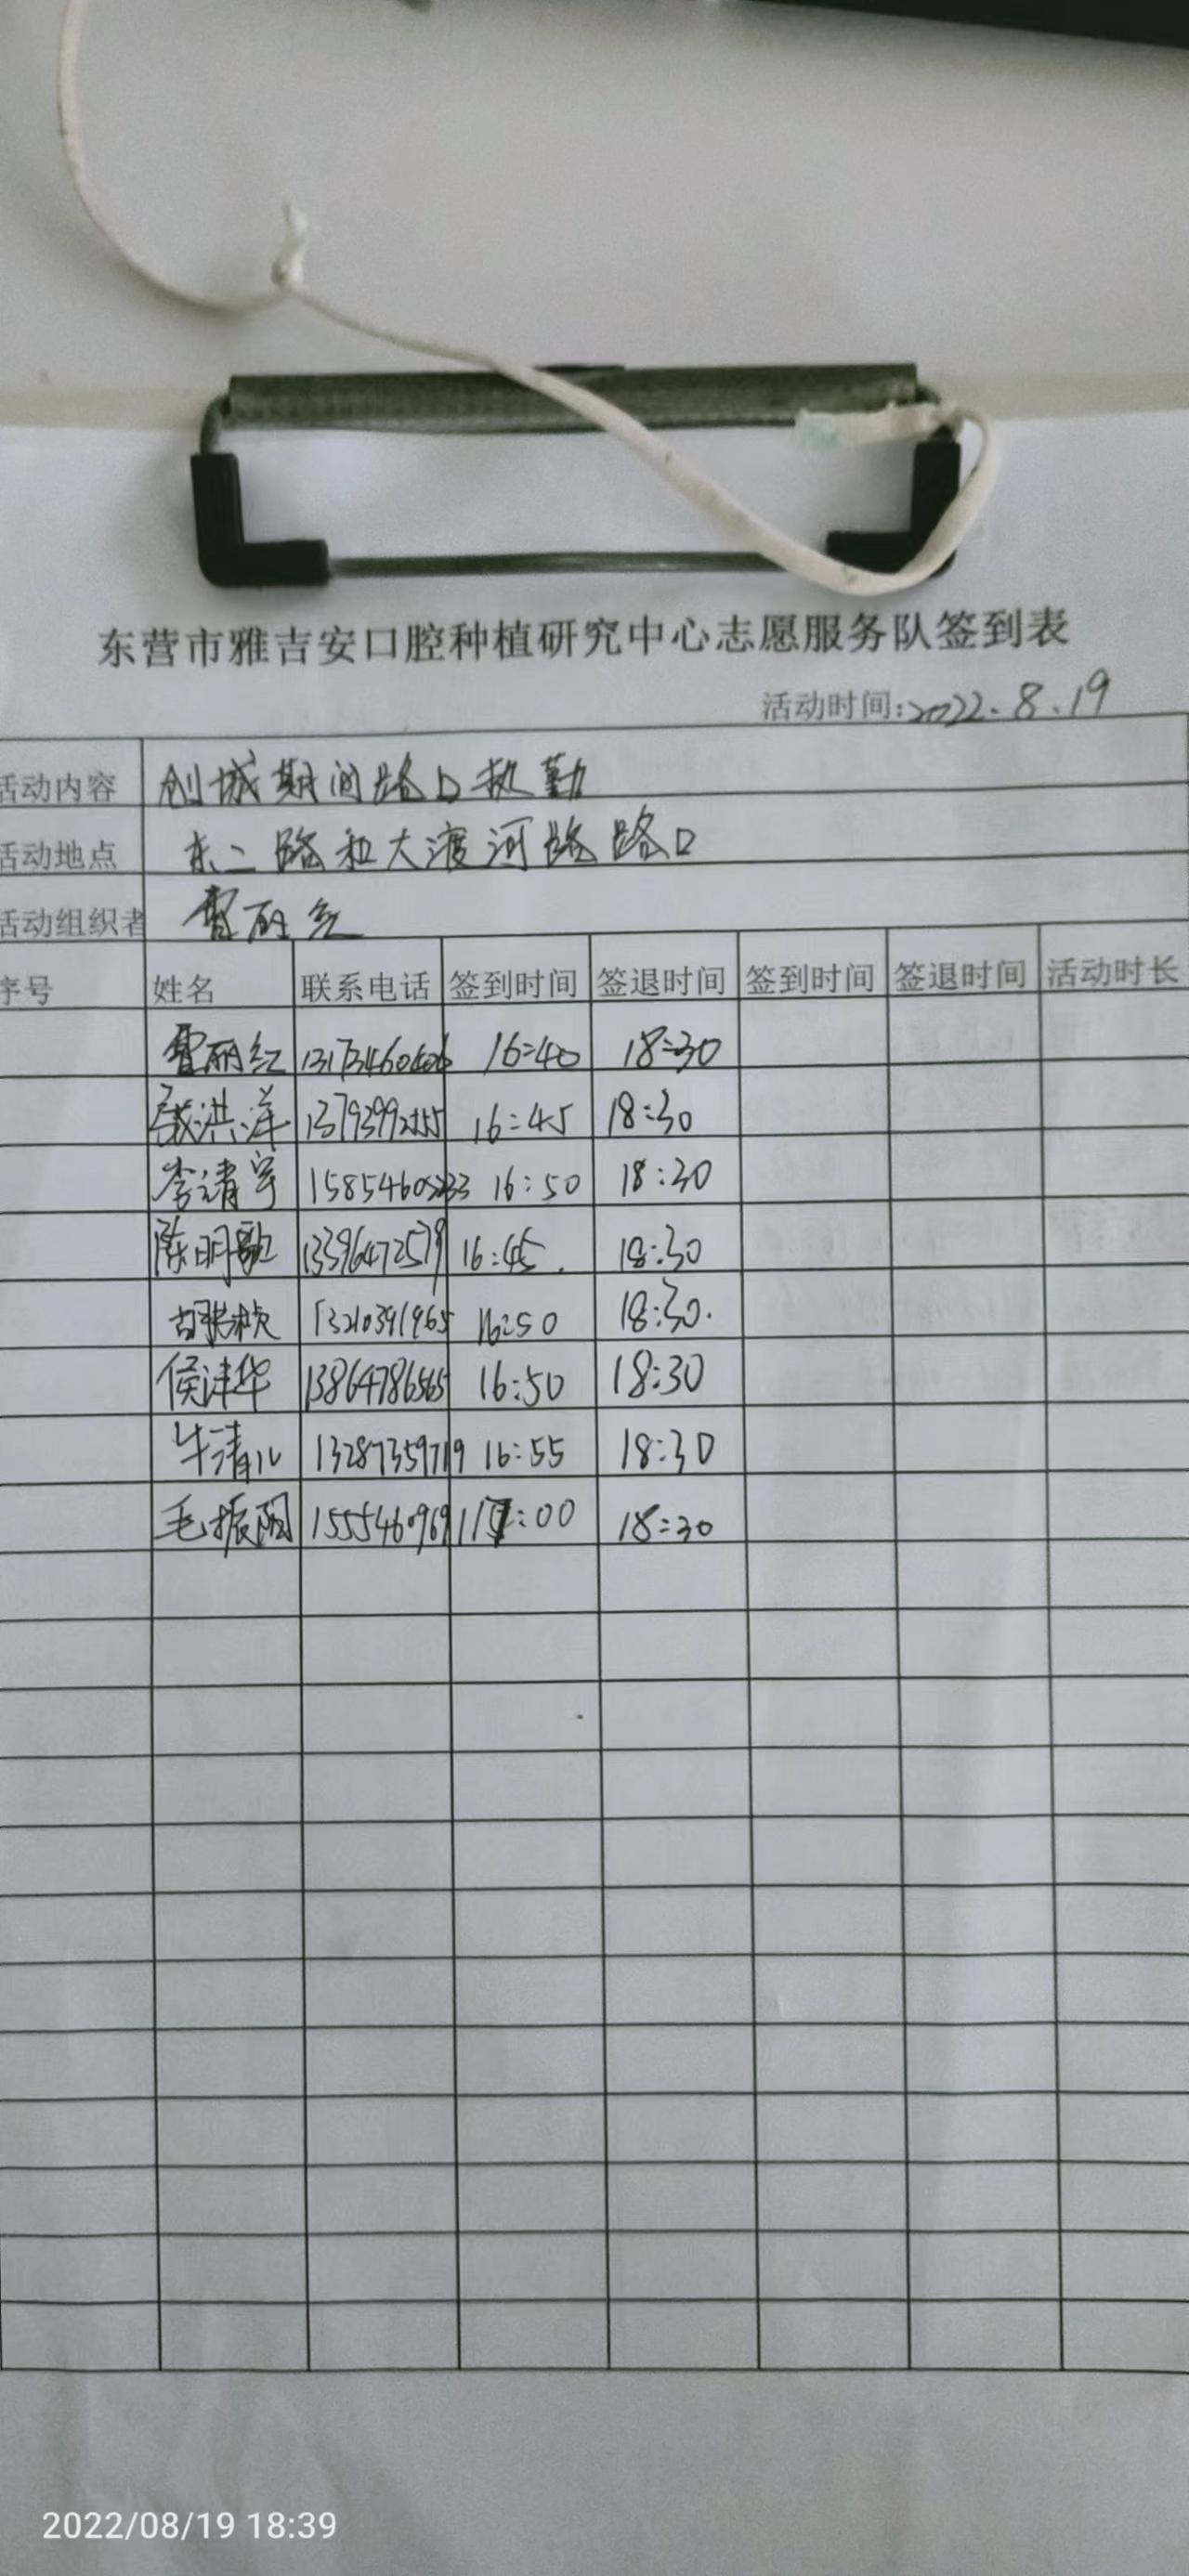 东营市雅吉安口腔种植研究中心志愿服务队签到表
活动时间:2022.8.19
活动内容 创城期间路口执勤
活动地点 东二路和大渡河路路口
活动组织者
序号 姓名 联系电话 签到时间 签退时间 签到时间 签退时间 活动时长
丽红 16:40 18:30
洪洋 16:45 18:30
李清宇 16:50 18:30
陈明歌 13396472579 16:45 18:30
13210391965 16:50 18:30
侯津华 13864786565 16:50 18:30
牛清儿 13287359719 16:55 18:30
毛振阳 17:00 18:30
2022/08/19 18:39